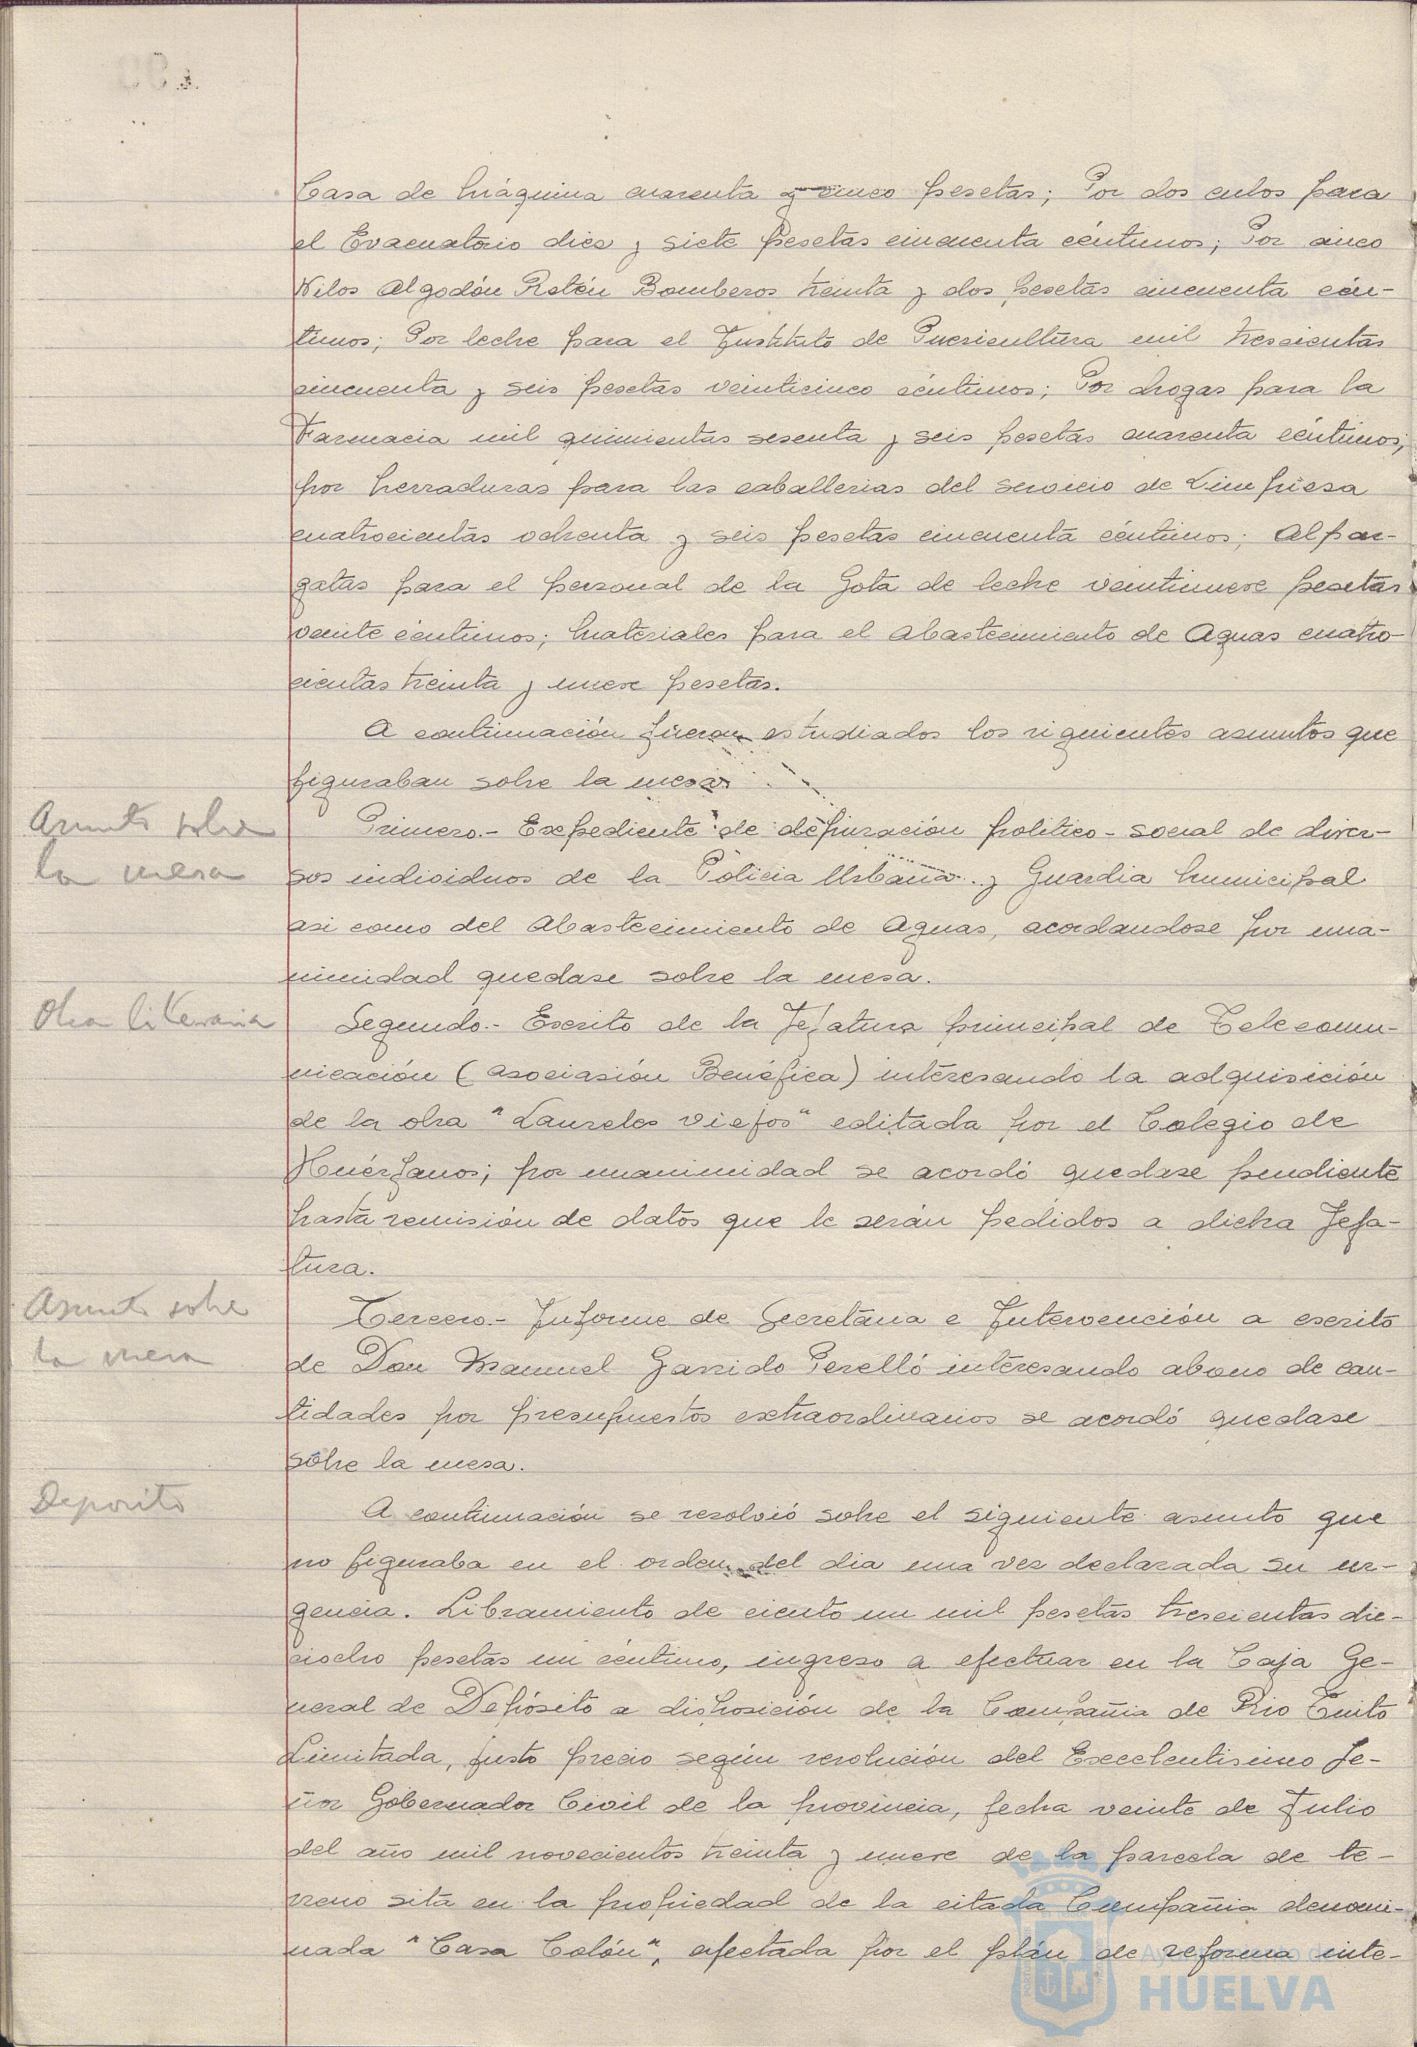 Casa de máquina cuarenta y cinco pesetas; Por dos cubos para
el Evacuatorio diez y siete pesetas cincuenta céntimos; Por cinco
Kilos Algodón Retén Bomberos treinta y dos pesetas cincuenta cén-
timos; Por leche para el Instituto de Puericultura mil trescientas
cincuenta y seis pesetas veinticinco céntimos; Por drogas para la
Farmacia mil quinientas sesenta y seis pesetas cuarenta céntimos;
por herraduras para las caballerias del servicio de Limpieza
cuatrocientas ochenta y seis pesetas cincuenta céntimos; Alpar-
gatas para el personal de la Gota de leche veintinueve pesetas
veinte céntimos; materiales para el Abastecimiento de Aguas cuatro-
cientas treinta y nueve pesetas.
A continuación fueron estudiados los siguientes asuntos que
figuraban sobre la mesa.
Asunto sobre
la mesa
Primero.- Expediente de depuración politico-social de diver-
sos individuos de la Policia Urbana y Guardia municipal
asi como del Abastecimiento de Aguas, acordandose por una-
nimidad quedase sobre la mesa.
Obra literaria
Segundo.- Escrito de la Jefatura principal de Telecomu-
nicación (Asociasión Benéfica) interesando la adquisición
de la obra "Laureles viejos" editada por el Colegio de
Huérfanos; por unanimidad se acordó quedase pendiente
hasta remisión de datos que le serán pedidos a dicha Jefa-
tura.
Asunto sobre
la mesa
Tercero.- Informe de Secretaria e Intervención a escrito
de Don Manuel Garrido Perelló interesando abono de can-
tidades por presupuestos extraordinarios se acordó quedase
sobre la mesa.
Deposito
A continuación se resolvió sobre el siguiente asunto que
no figuraba en el orden del dia una vez declarada su ur-
gencia. Libramiento de ciento un mil pesetas trescientas die-
ciocho pesetas un céntimo, ingreso a efectuar en la Caja Ge-
neral de Depósito a disposición de la Compañia de Rio Tinto
Limitada, justo precio según resolución del Excelentisimo Se-
ñor Gobernador Civil de la provincia, fecha veinte de Julio
del año mil novecientos treinta y nueve de la parcela de te-
rreno sita en la propiedad de la citada Compañia denomi-
nada "Casa Colón", afectada por el plán de reforma inte-
Ayuntamiento de
HUELVA